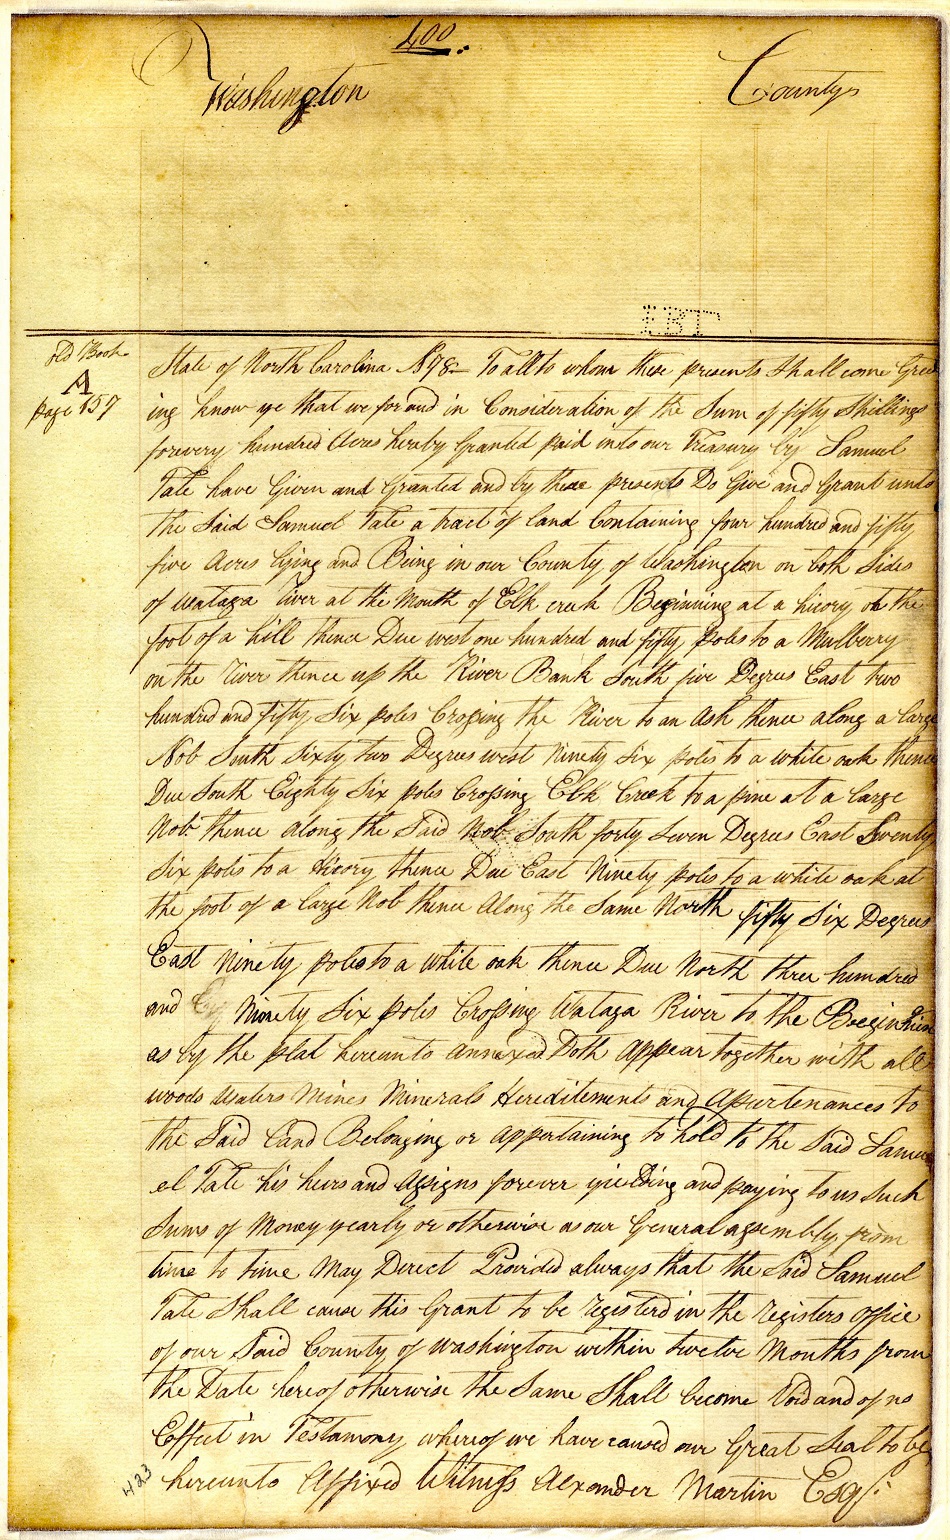 400
Washington County
LBT
old Book
A
page 157
State of North Carolina No 98 To all to whom these presents Shall come Greet
ing know ye that we for and in Consideration of the Sum of fifty Shillings
forevery hundred Acres hereby Granted paid into our Treasury by Samuel
Tate have Given and Granted and by these presents Do Give and Grant unto
the Said Samuel Tate a tract of land Containing four hundred and fifty
five Acres lying and Being in our County of Washington on both Sides
of Wataga River at the Mouth of Elk creek Beginning at a hicory on the
foot of a hill thence Due west one hundred and fifty poles to a Mulberry
on the River thence up the River Bank South five Degrees East two
hundred and fifty Six poles Crossing the River to an Ash thence along a large
Nob South Sixty two Degrees west Ninety Six poles to a white oak thence
Due South Eighty Six poles Crossing Elk Creek to a pine at a large
Nob thence along the Said Nob South forty Seven Degrees East Seventy
Six poles to a Hicory thence Due East Ninety poles to a white oak at
the foot of a large Nob thence Along the Same North fifty Six Degrees
East Ninety poles to a white oak thence Due North three hundred
and Ninety Six poles Crossing Wataga River to the Beeginhing
as by the plat hereunto annexed Doth Appear together with all
woods Waters Mines Minerals Hereditements and Apurtenances to
the Said Land Belonging or appertaining to hold to the Said Samu
el Tate his heirs and Assigns forever yielding and paying to us Such
Sums of Money yearly or otherwise as our General assembly from
time to time May Derect Provided always that the Said Samuel
Tate Shall cause this Grant to be registerd in the registers office
of our Said County of Washington within twelve Months from
the Date hereof otherwise the Same Shall become Void and of no
Effect in Testamony whereof we have caused our Great Seal to be
hereunto Affixed Witness Alexander Martin Esqr.
423